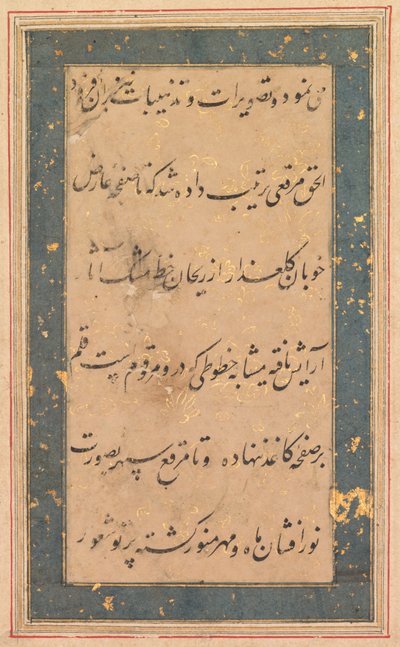 می نمود و تصویرات و تذهیبات نیز بران افزود
الحق مرقعی ترتیب داده شد که تا صفحه عارض
خوبان گلعذار از ریحان خط مشک
آرایش یافته مشابه خطوطی که در و مرقوم است قلم
بر صفحه کاغذ ننهاده و تا مرقع سپهر بصورت
نور افشان ماه و مهر منور کشته پرتو شعور